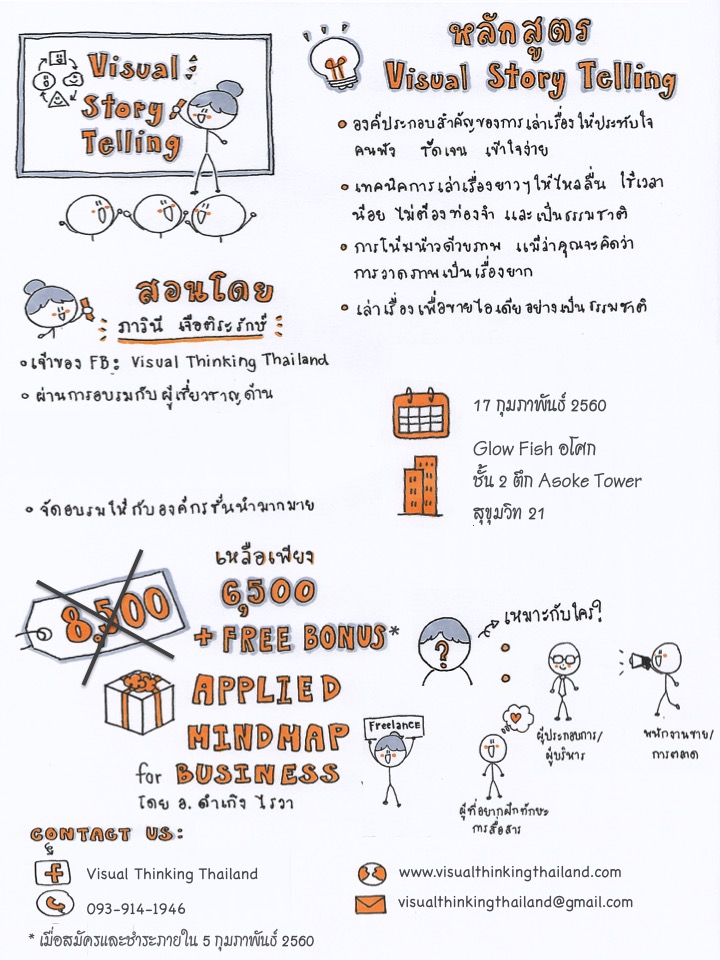 Visual
Story
Telling
หลักสูตร
Visual Story Telling
องค์ประกอบสำคัญของการเล่าเรื่องให้ประทับใจ
คนฟัง ชัดเจน เข้าใจง่าย
เทคนิคการเล่าเรื่องยาวๆ ให้ไหลลื่น ใช้เวลา
น้อย ไม่ต้องท่องจำ และเป็นธรรมชาติ
การโน้มน้าวด้วยภาพ แม้ว่าคุณจะคิดว่า
การวาดภาพเป็นเรื่องยาก
เล่าเรื่องเพื่อขายไอเดียอย่างเป็นธรรมชาติ
สอนโดย
ภาวินี เจือติระรักษ์
เจ้าของ FB: Visual Thinking Thailand
ผ่านการอบรมกับผู้เชี่ยวชาญด้าน
จัดอบรมให้กับองค์กรชั้นนำมากมาย
17 กุมภาพันธ์ 2560
Glow Fish อโศก
ชั้น 2 ตึก Asoke Tower
สุขุมวิท 21
8,500
เหลือเพียง
6,500
+ FREE BONUS*
APPLIED
MINDMAP
for BUSINESS
โดย อ. ดำเกิง ไรวา
เหมาะกับใคร?
?
ผู้ประกอบการ/
ผู้บริหาร
พนักงานขาย/
การตลาด
Freelance
ผู้ที่อยากฝึกทักษะ
การสื่อสาร
CONTACT US:
f Visual Thinking Thailand
093-914-1946
www.visualthinkingthailand.com
visualthinkingthailand@gmail.com
* เมื่อสมัครและชำระภายใน 5 กุมภาพันธ์ 2560